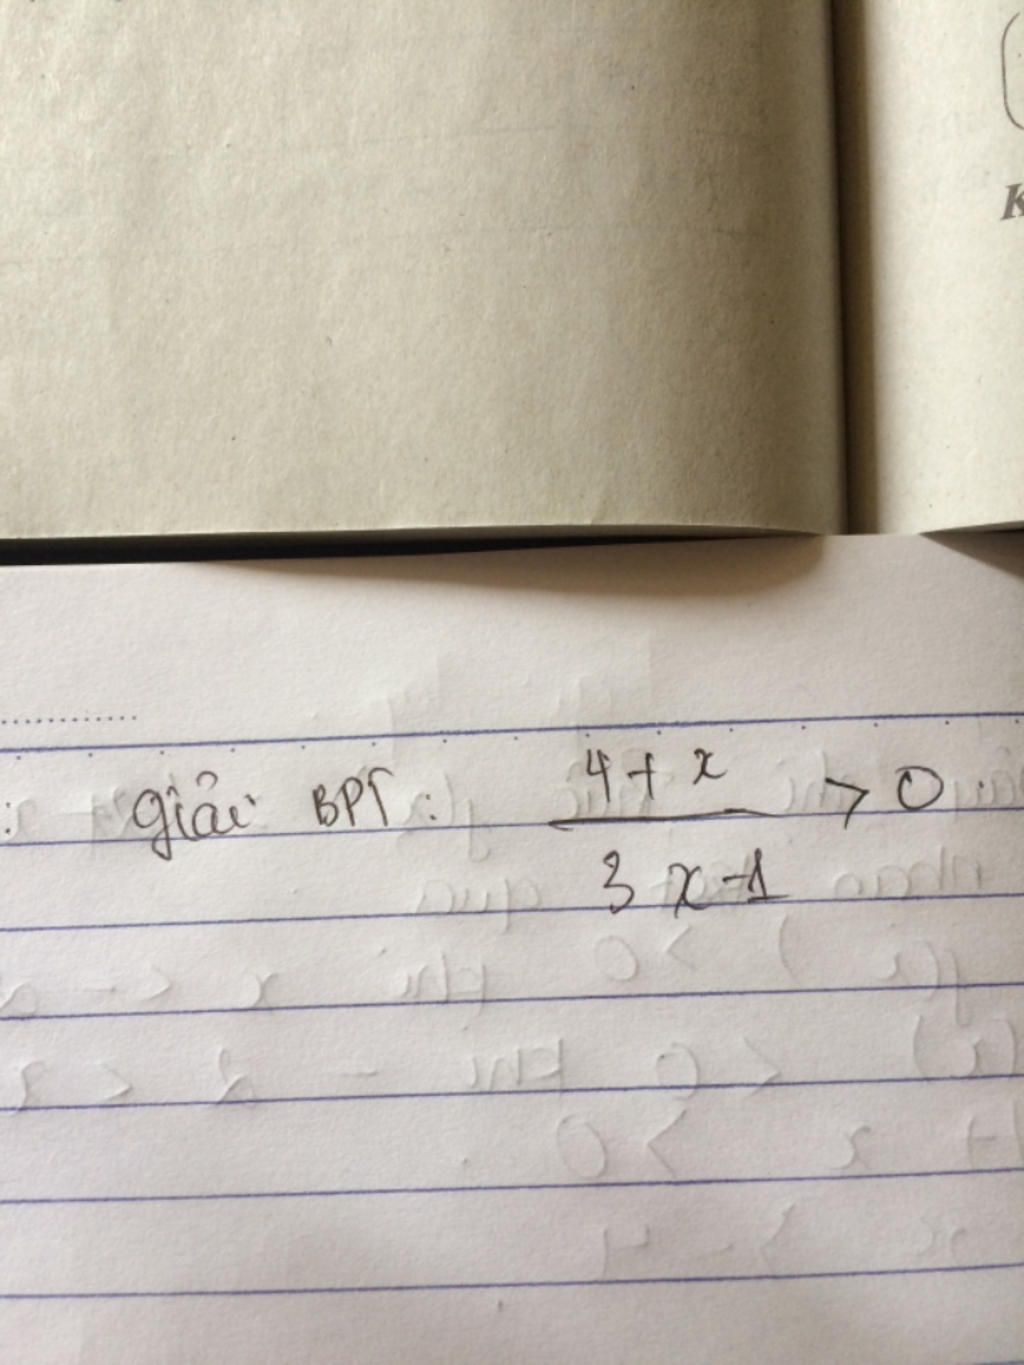 K
: giải BPT: 4 + x / 3x - 1 > 0